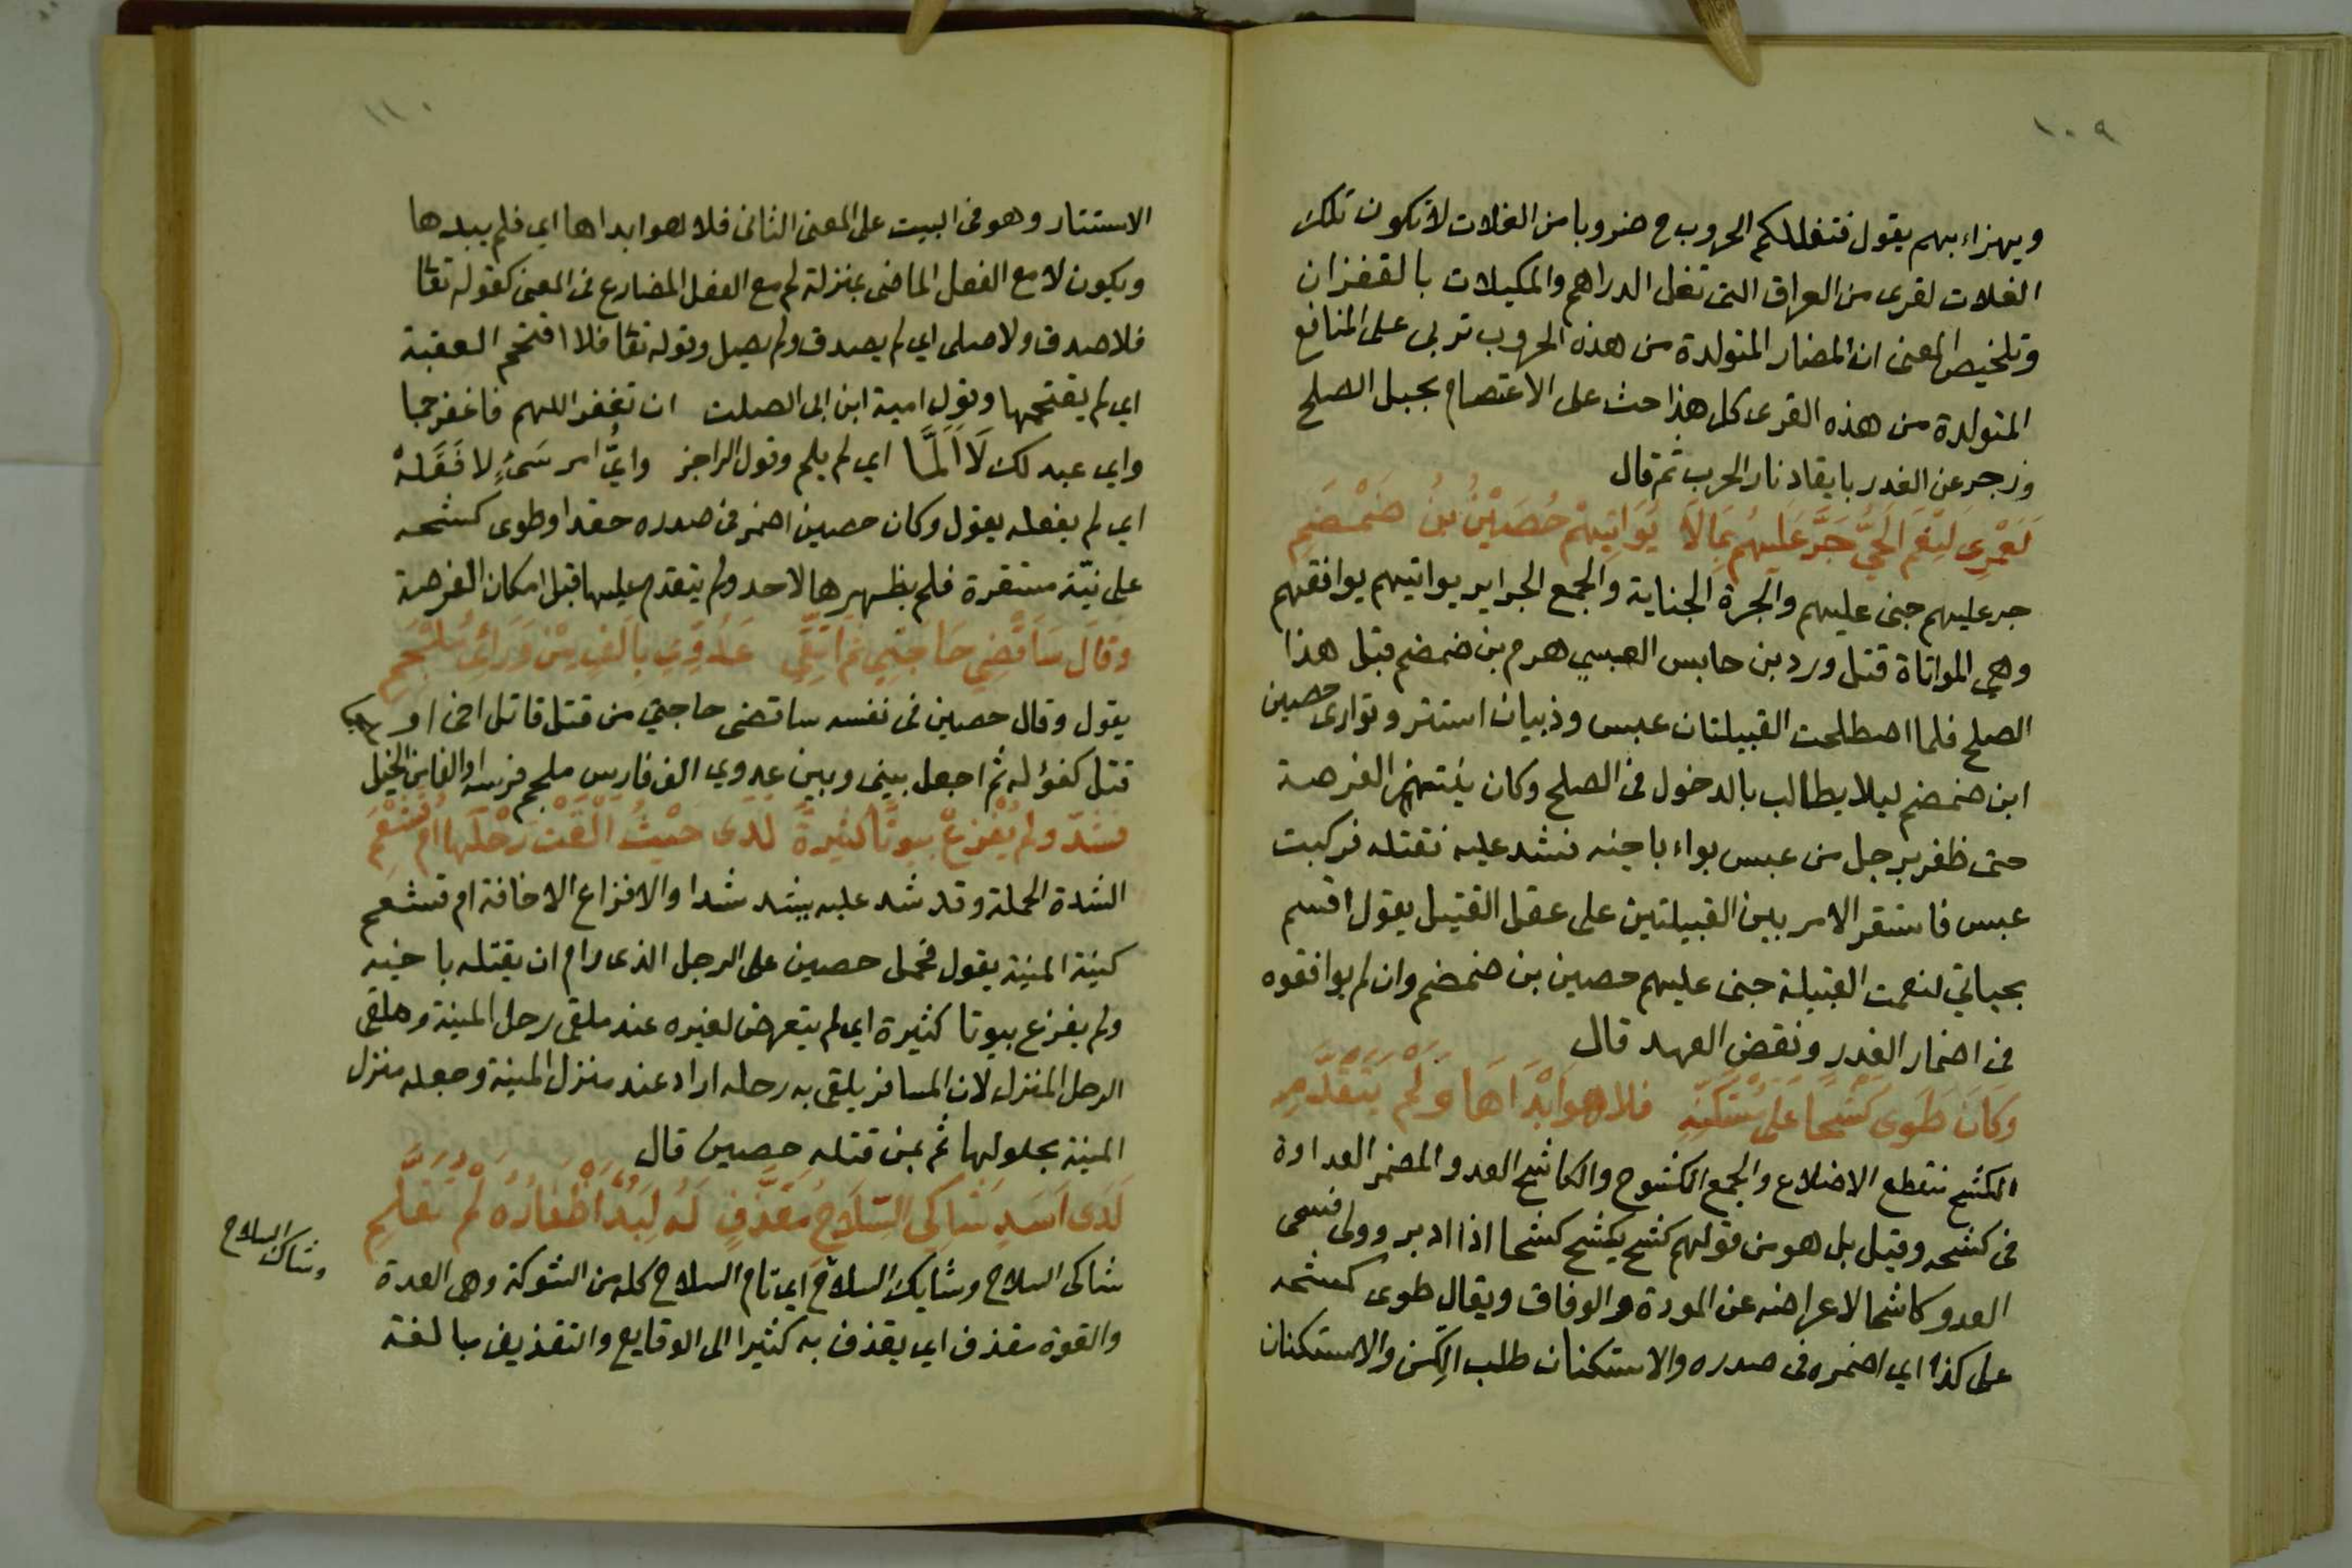 ١٠٩
ويهزاء بهم يقول فتغللكم الحروب ح ضروبا من الغلات لا تكون تلك
الغلات لقرى من العراق التى تغل الدراهم والمكيلات بالقفزان
وتلخيص المعنى ان المضار المتولدة من هذه الحروب تربى على المنافع
المتولدة من هذه القرى كل هذا حث على الاعتصام بحبل الصلح
وزجر عن الغدر بايقاد نار الحرب ثم قال
لَعَمْرِى لَنِعْمَ الحَيُّ جَرَّ عَلَيهُم بِمَا لَا يُوَاتِيهْم حُصَيْنُ بْنُ ضَمْضَمِ
جر عليهم جنى عليهم والجرة الجناية والجمع الجراير يواتيهم يوافقهم
وهي المواتاة قتل ورد بن حابس العبسي هرم بن ضمضم قبل هذا
الصلح فلما اصطلحت القبيلتان عبس وذبيان استتر وتوارى حصين
ابن ضمضم ليلا يطالب بالدخول فى الصلح وكان ينتهز الفرصة
حتى ظفر برجل من عبس بواء باخيه فشد عليه فقتله فركبت
عبس فاستقر الامر بين القبيلتين على عقل القتيل يقول اقسم
بحياتي لنعمت القبيلة جنى عليهم حصين بن ضمضم وان لم يوافقوه
فى اضمار الغدر ونقض العهد قال
وَكَانَ طَوَى كَشْحًا عَلَى مُسْتَكِنَّةٍ فلا هو أَبْدَاهَا وَلَمْ يَتَقَدَّمِ
الكشح منقطع الاضلاع والجمع الكشوح والكاشح العدو المضمر العداوة
فى كشحه وقيل بل هو من قولهم كشح يكشح كشحا اذا ادبر وولى فسمى
العدو كاشحا لاعراضه عن المودة والوفاق ويقال طوى كشحه
على كذا اي اضمره فى صدره والاستكنان طلب الكِن والاستكنان
١١٠
الاستتار وهو فى البيت على المعنى الثانى فلا هو ابداها اي فلم يبدها
ويكون لا مع الفعل الماضى بمنزلة لم مع الفعل المضارع فى المعنى كقوله تعا
فلا صدق ولا صلى اي لم يصدق ولم يصل وقوله تعا فلا اقتحم العقبة
اي لم يقتحمها وقول امية ابن ابى الصلت ان تغفر اللهم فاغفر جما
واي عبد لك لَا اَلَمَّا اي لم يلم وقول الراجز وايُّ امر سَىّءٍ لا فَعَلَهْ
اي لم يفعله يقول وكان حصين اضمر فى صدره حقدا وطوى كشحه
على نيّة مستقرة فلم يظهرها لاحد ولم يتقدم عليها قبل امكان الفرصة
وَقَالَ سَاَقْضِي حَاجَتِي ثُمَّ اَتَّقِي عَدُوِّي بِاَلْفٍ مِنْ وَرَائِى مُلْجَمِ
يقول وقال حصين فى نفسه ساقضى حاجتي من قتل قاتل اخى او
قتل كفؤ له ثم اجعل بينى وبين عدوي الف فارس ملجم فرسه او الفا من الخيل
فشدّ ولم يُفْزِعْ بيوتًا كثيرةً لَدَى حَيْثُ اَلْقَتْ رَحْلَهَا اُمُّ قَشْعَمِ
الشدة الحملة وقد شد عليه يشد شدا والافزاع الاخافة ام قشعم
كنية المنية يقول فحمل حصين على الرجل الذى رام ان يقتله باخيه
ولم يفزع بيوتا كثيرة اي لم يتعرض لغيره عند ملقى رحل المنية وملقى
الرحل المنزل لان المسافر يلقى به رحله اراد عند منزل المنية وجعله منزل
المنية بحلولها ثم بمن قتله حصين قال
لَدَى اَسَدٍ شَاكِى السِّلَاحِ مُقَذَّفٍ لَهُ لِبَدٌ اَظْفَارُهُ لَمْ تُقَلَّمِ
شاكى السلاح وشايك السلاح اي تام السلاح كله من الشوكة وهى العدة
وشاك السلاح
والقوة مقذف اي يقذف به كثيرا الى الوقايع والتقذيف مبالغة